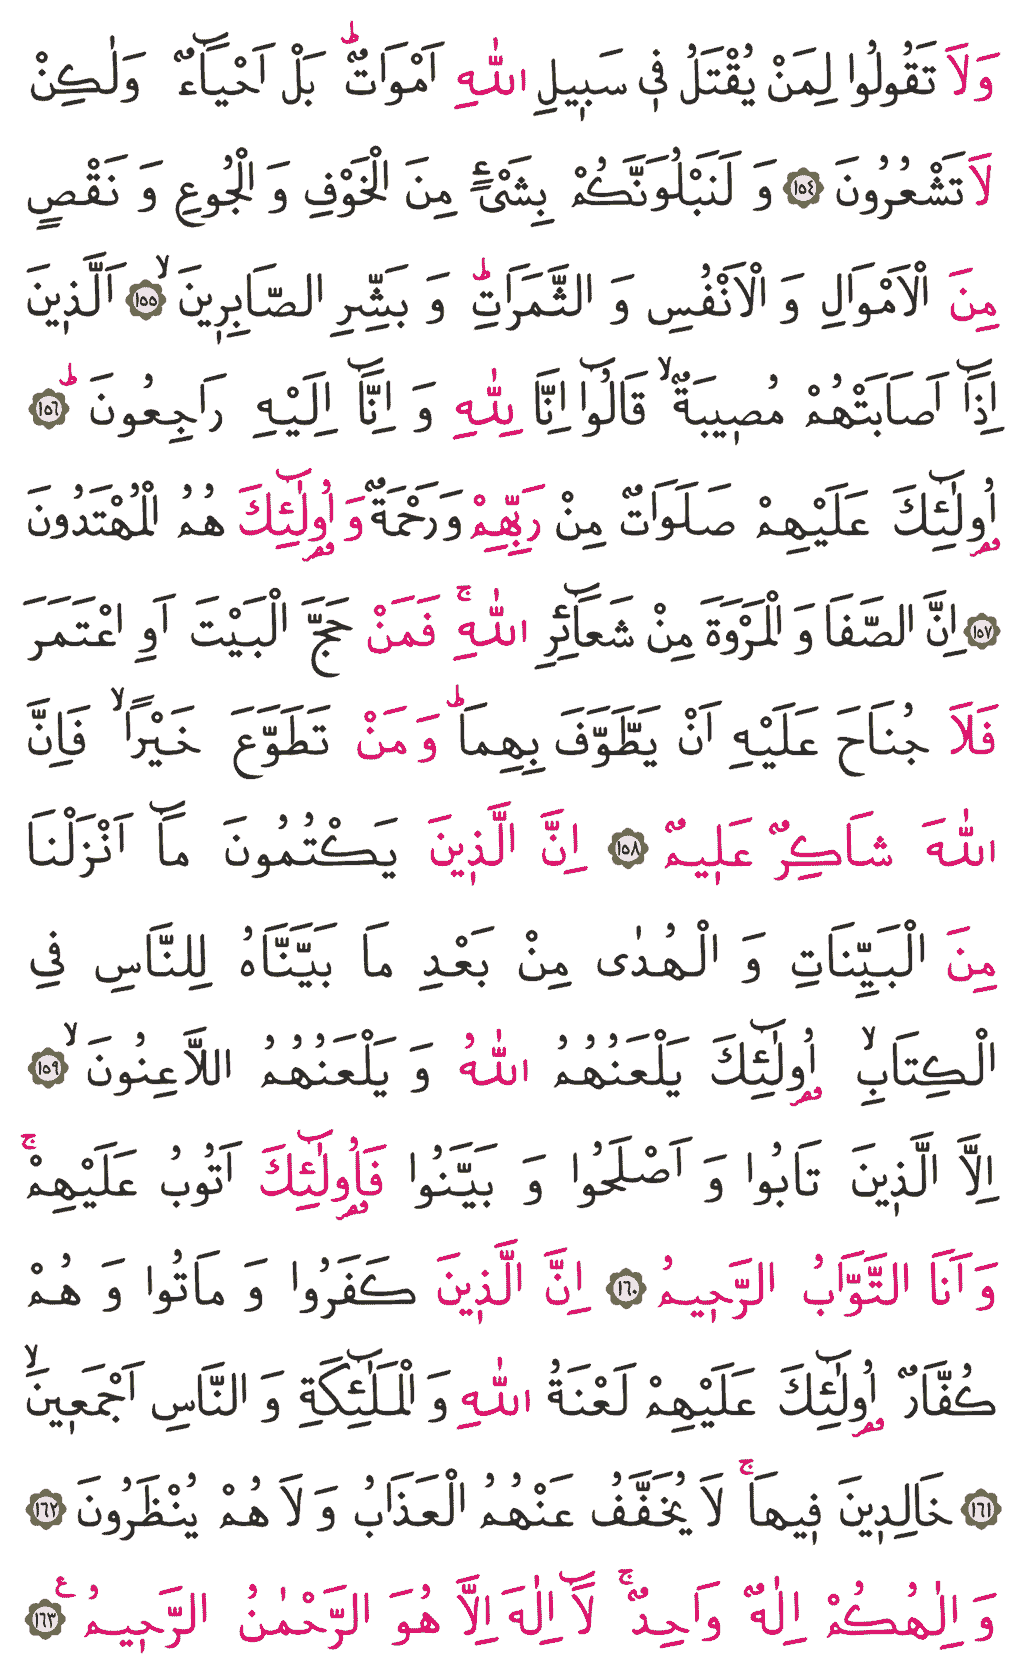 وَلَا تَقُولُوا لِمَنْ يُقْتَلُ فٖي سَبٖيلِ اللّٰهِ اَمْوَاتٌؕ بَلْ اَحْيَٓاءٌ وَلٰكِنْ
لَا تَشْعُرُونَ ﴿١٥٤﴾ وَ لَنَبْلُوَنَّكُمْ بِشَیْءٍ مِنَ الْخَوْفِ وَ الْجُوعِ وَ نَقْصٍ
مِنَ الْاَمْوَالِ وَ الْاَنْفُسِ وَ الثَّمَرَاتِؕ وَ بَشِّرِ الصَّابِرٖينَۙ ﴿١٥٥﴾ اَلَّذٖينَ
اِذَٓا اَصَابَتْهُمْ مُصٖيبَةٌۙ قَالُٓوا اِنَّا لِلّٰهِ وَ اِنَّٓا اِلَيْهِ رَاجِعُونَؕ ﴿١٥٦﴾
اُو۬لٰٓئِكَ عَلَيْهِمْ صَلَوَاتٌ مِنْ رَبِّهِمْ وَرَحْمَةٌ وَ اُو۬لٰٓئِكَ هُمُ الْمُهْتَدُونَ
﴿١٥٧﴾ اِنَّ الصَّفَا وَ الْمَرْوَةَ مِنْ شَعَٓائِرِ اللّٰهِۚ فَمَنْ حَجَّ الْبَيْتَ اَوِ اعْتَمَرَ
فَلَا جُنَاحَ عَلَيْهِ اَنْ يَطَّوَّفَ بِهِمَاؕ وَ مَنْ تَطَوَّعَ خَيْرًاۙ فَاِنَّ
اللّٰهَ شَاكِرٌ عَلٖيمٌ ﴿١٥٨﴾ اِنَّ الَّذٖينَ يَكْتُمُونَ مَٓا اَنْزَلْنَا
مِنَ الْبَيِّنَاتِ وَ الْهُدٰى مِنْ بَعْدِ مَا بَيَّنَّاهُ لِلنَّاسِ فِی
الْكِتَابِۙ اُو۬لٰٓئِكَ يَلْعَنُهُمُ اللّٰهُ وَ يَلْعَنُهُمُ اللَّاعِنُونَۙ ﴿١٥٩﴾
اِلَّا الَّذٖينَ تَابُوا وَ اَصْلَحُوا وَ بَيَّنُوا فَاُو۬لٰٓئِكَ اَتُوبُ عَلَيْهِمْۚ
وَ اَنَا التَّوَّابُ الرَّحٖيمُ ﴿١٦٠﴾ اِنَّ الَّذٖينَ كَفَرُوا وَ مَاتُوا وَ هُمْ
كُفَّارٌ اُو۬لٰٓئِكَ عَلَيْهِمْ لَعْنَةُ اللّٰهِ وَ الْمَلٰٓئِكَةِ وَ النَّاسِ اَجْمَعٖينَۙ
﴿١٦١﴾ خَالِدٖينَ فٖيهَاۚ لَا يُخَفَّفُ عَنْهُمُ الْعَذَابُ وَ لَا هُمْ يُنْظَرُونَ ﴿١٦٢﴾
وَ اِلٰهُكُمْ اِلٰهٌ وَاحِدٌۚ لَٓا اِلٰهَ اِلَّا هُوَ الرَّحْمٰنُ الرَّحٖيمُ ع ﴿١٦٣﴾